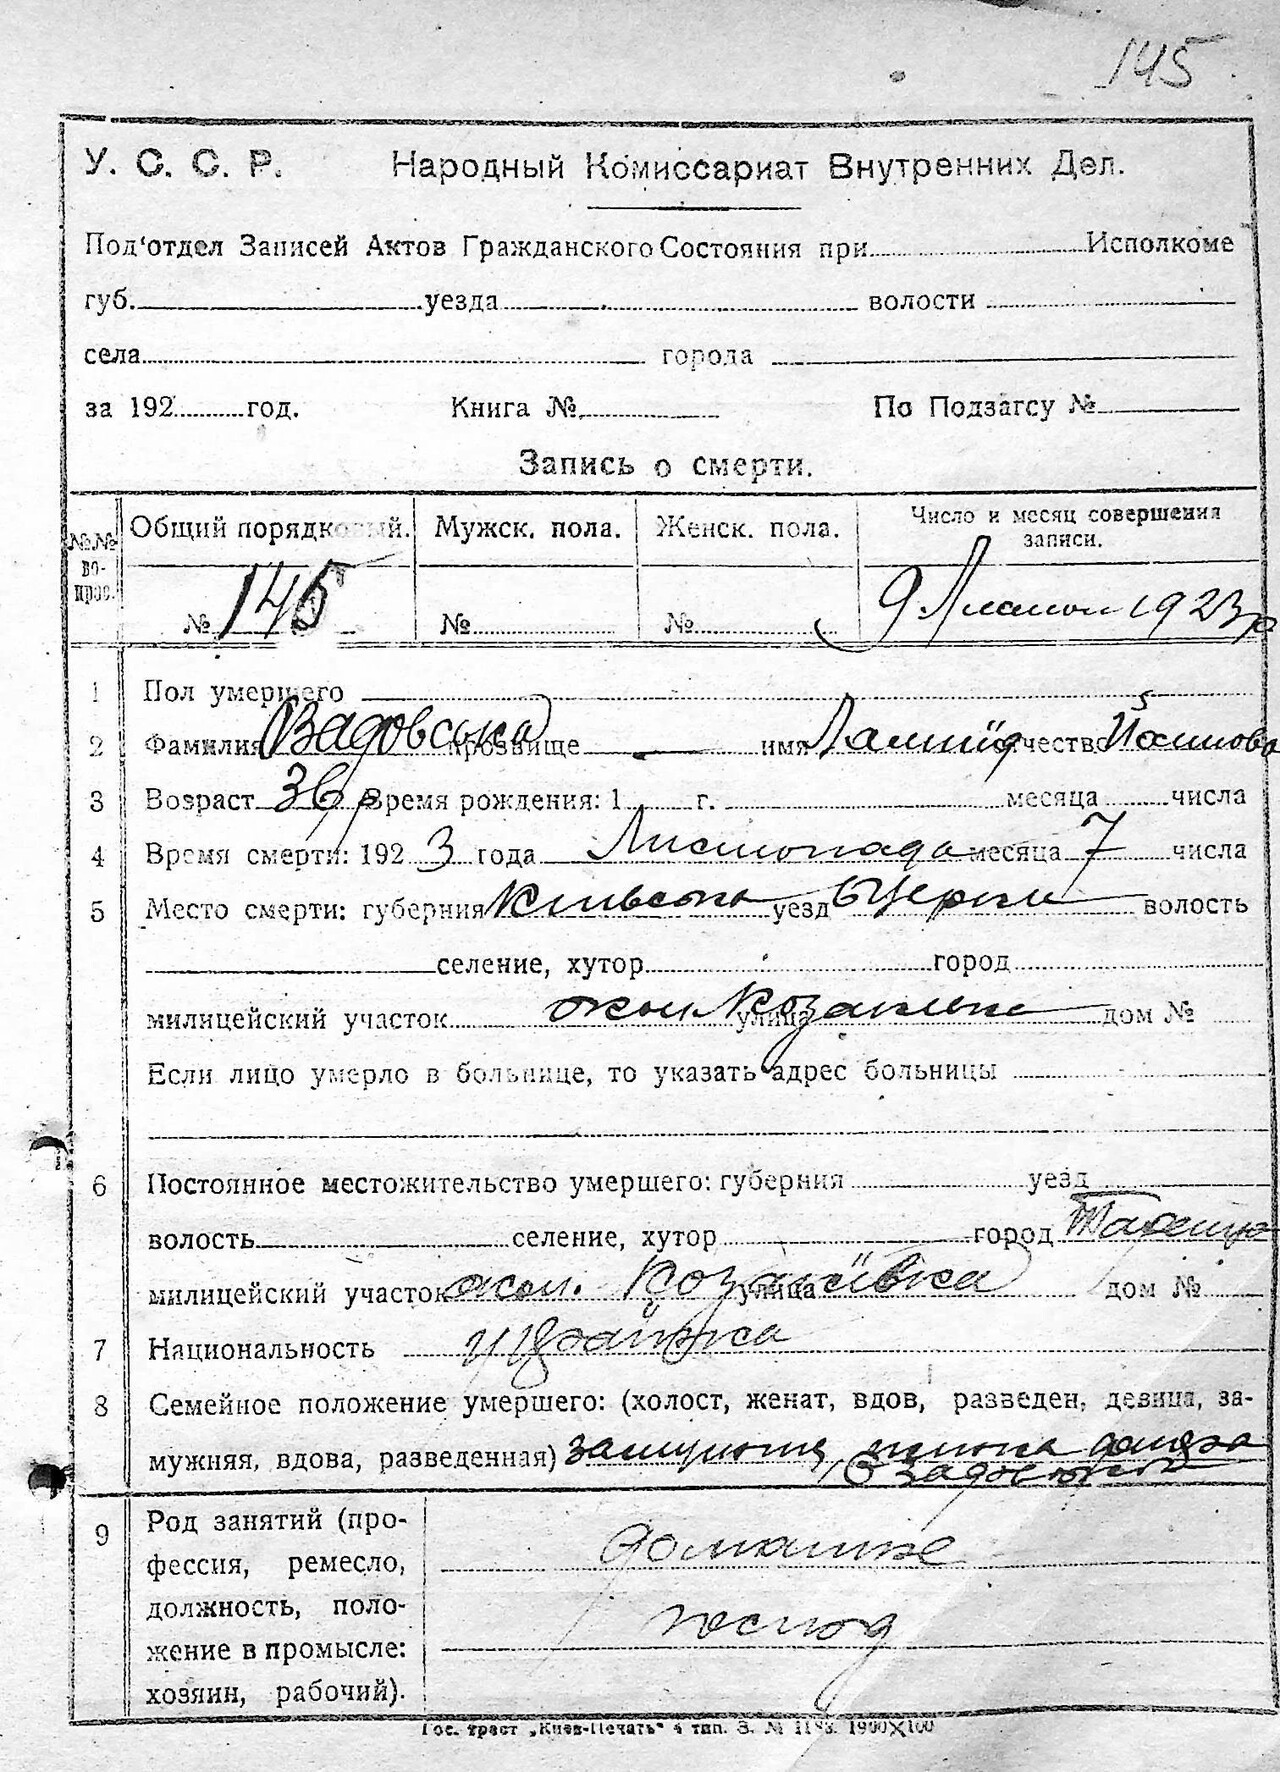 145
У. С. С. Р. Народный Комиссариат Внутренних Дел.
Под'отдел Записей Актов Гражданского Состояния при Исполкоме
губ. уезда волости
села города
за 192 год. Книга № По Подзагсу №
Запись о смерти.
№№ вопрос. Общий порядковый. Мужск. пола. Женск. пола. Число и месяц совершения записи.
№ 145 № № 9 1923 р
1 Пол умершего
2 Фамилия Вадовська прозвище — имя отчество
3 Возраст 36 р Время рождения: 1 г. месяца числа
4 Время смерти: 1923 года Листопада месяца 7 числа
5 Место смерти: губерния Київська уезд Б Церкви волость
селение, хутор город
милицейский участок улица дом №
Если лицо умерло в больнице, то указать адрес больницы
6 Постоянное местожительство умершего: губерния уезд
волость селение, хутор город
милицейский участок Козаківка улица дом №
7 Национальность
8 Семейное положение умершего: (холост, женат, вдов, разведен, девица, за-
мужняя, вдова, разведенная)
9 Род занятий (про-
фессия, ремесло, домашнє
должность, поло-
жение в промысле: господ
хозяин, рабочий).
Гос. трест „Киев-Печать“ 4 тип. З. № 1900×100